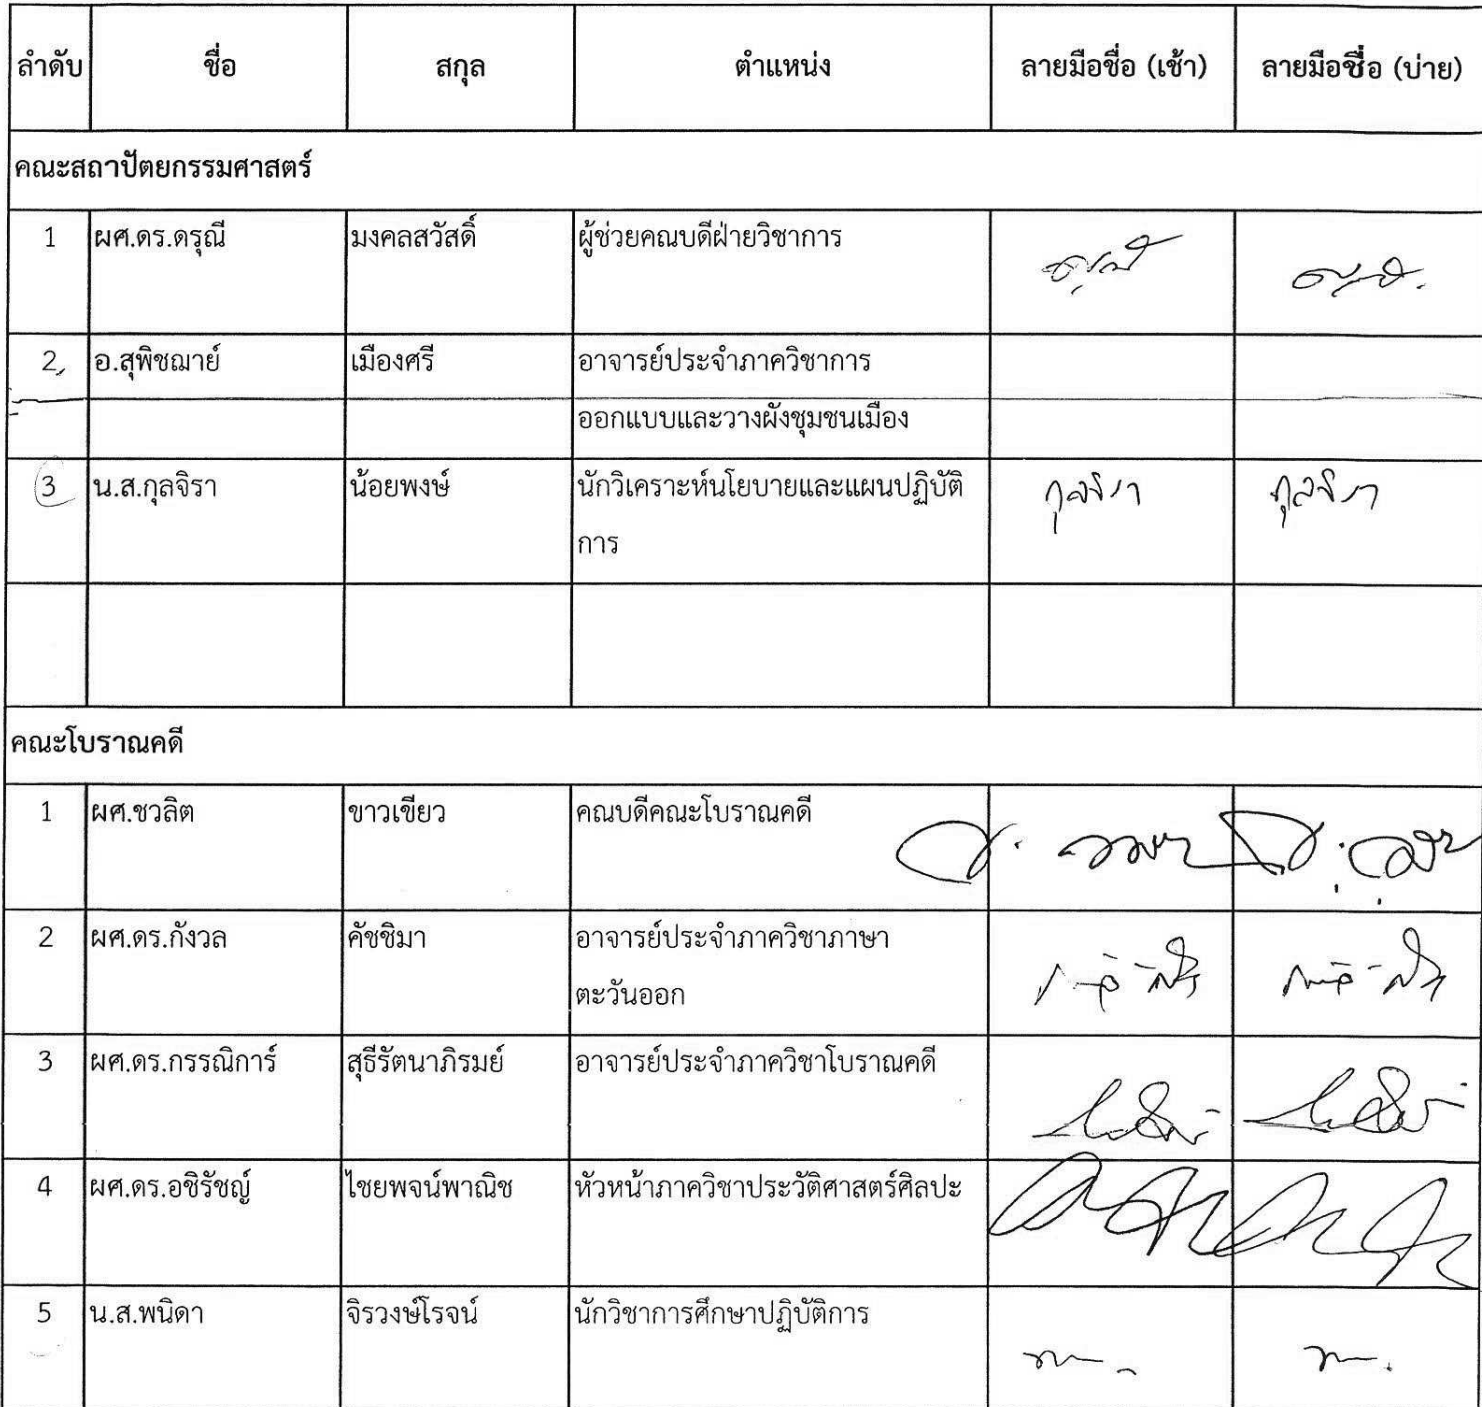 ลำดับ ชื่อ สกุล ตำแหน่ง ลายมือชื่อ (เช้า) ลายมือชื่อ (บ่าย)
คณะสถาปัตยกรรมศาสตร์
1 ผศ.ดร.ดรุณี มงคลสวัสดิ์ ผู้ช่วยคณบดีฝ่ายวิชาการ
2 อ.สุพิชฌาย์ เมืองศรี อาจารย์ประจำภาควิชาการ
ออกแบบและวางผังชุมชนเมือง
3 น.ส.กุลจิรา น้อยพงษ์ นักวิเคราะห์นโยบายและแผนปฏิบัติ กุลจิรา กุลจิรา
การ
คณะโบราณคดี
1 ผศ.ชวลิต ขาวเขียว คณบดีคณะโบราณคดี
2 ผศ.ดร.กังวล คัชชิมา อาจารย์ประจำภาควิชาภาษา
ตะวันออก
3 ผศ.ดร.กรรณิการ์ สุธีรัตนาภิรมย์ อาจารย์ประจำภาควิชาโบราณคดี
4 ผศ.ดร.อชิรัชญ์ ไชยพจน์พาณิช หัวหน้าภาควิชาประวัติศาสตร์ศิลปะ
5 น.ส.พนิดา จิรวงษ์โรจน์ นักวิชาการศึกษาปฏิบัติการ